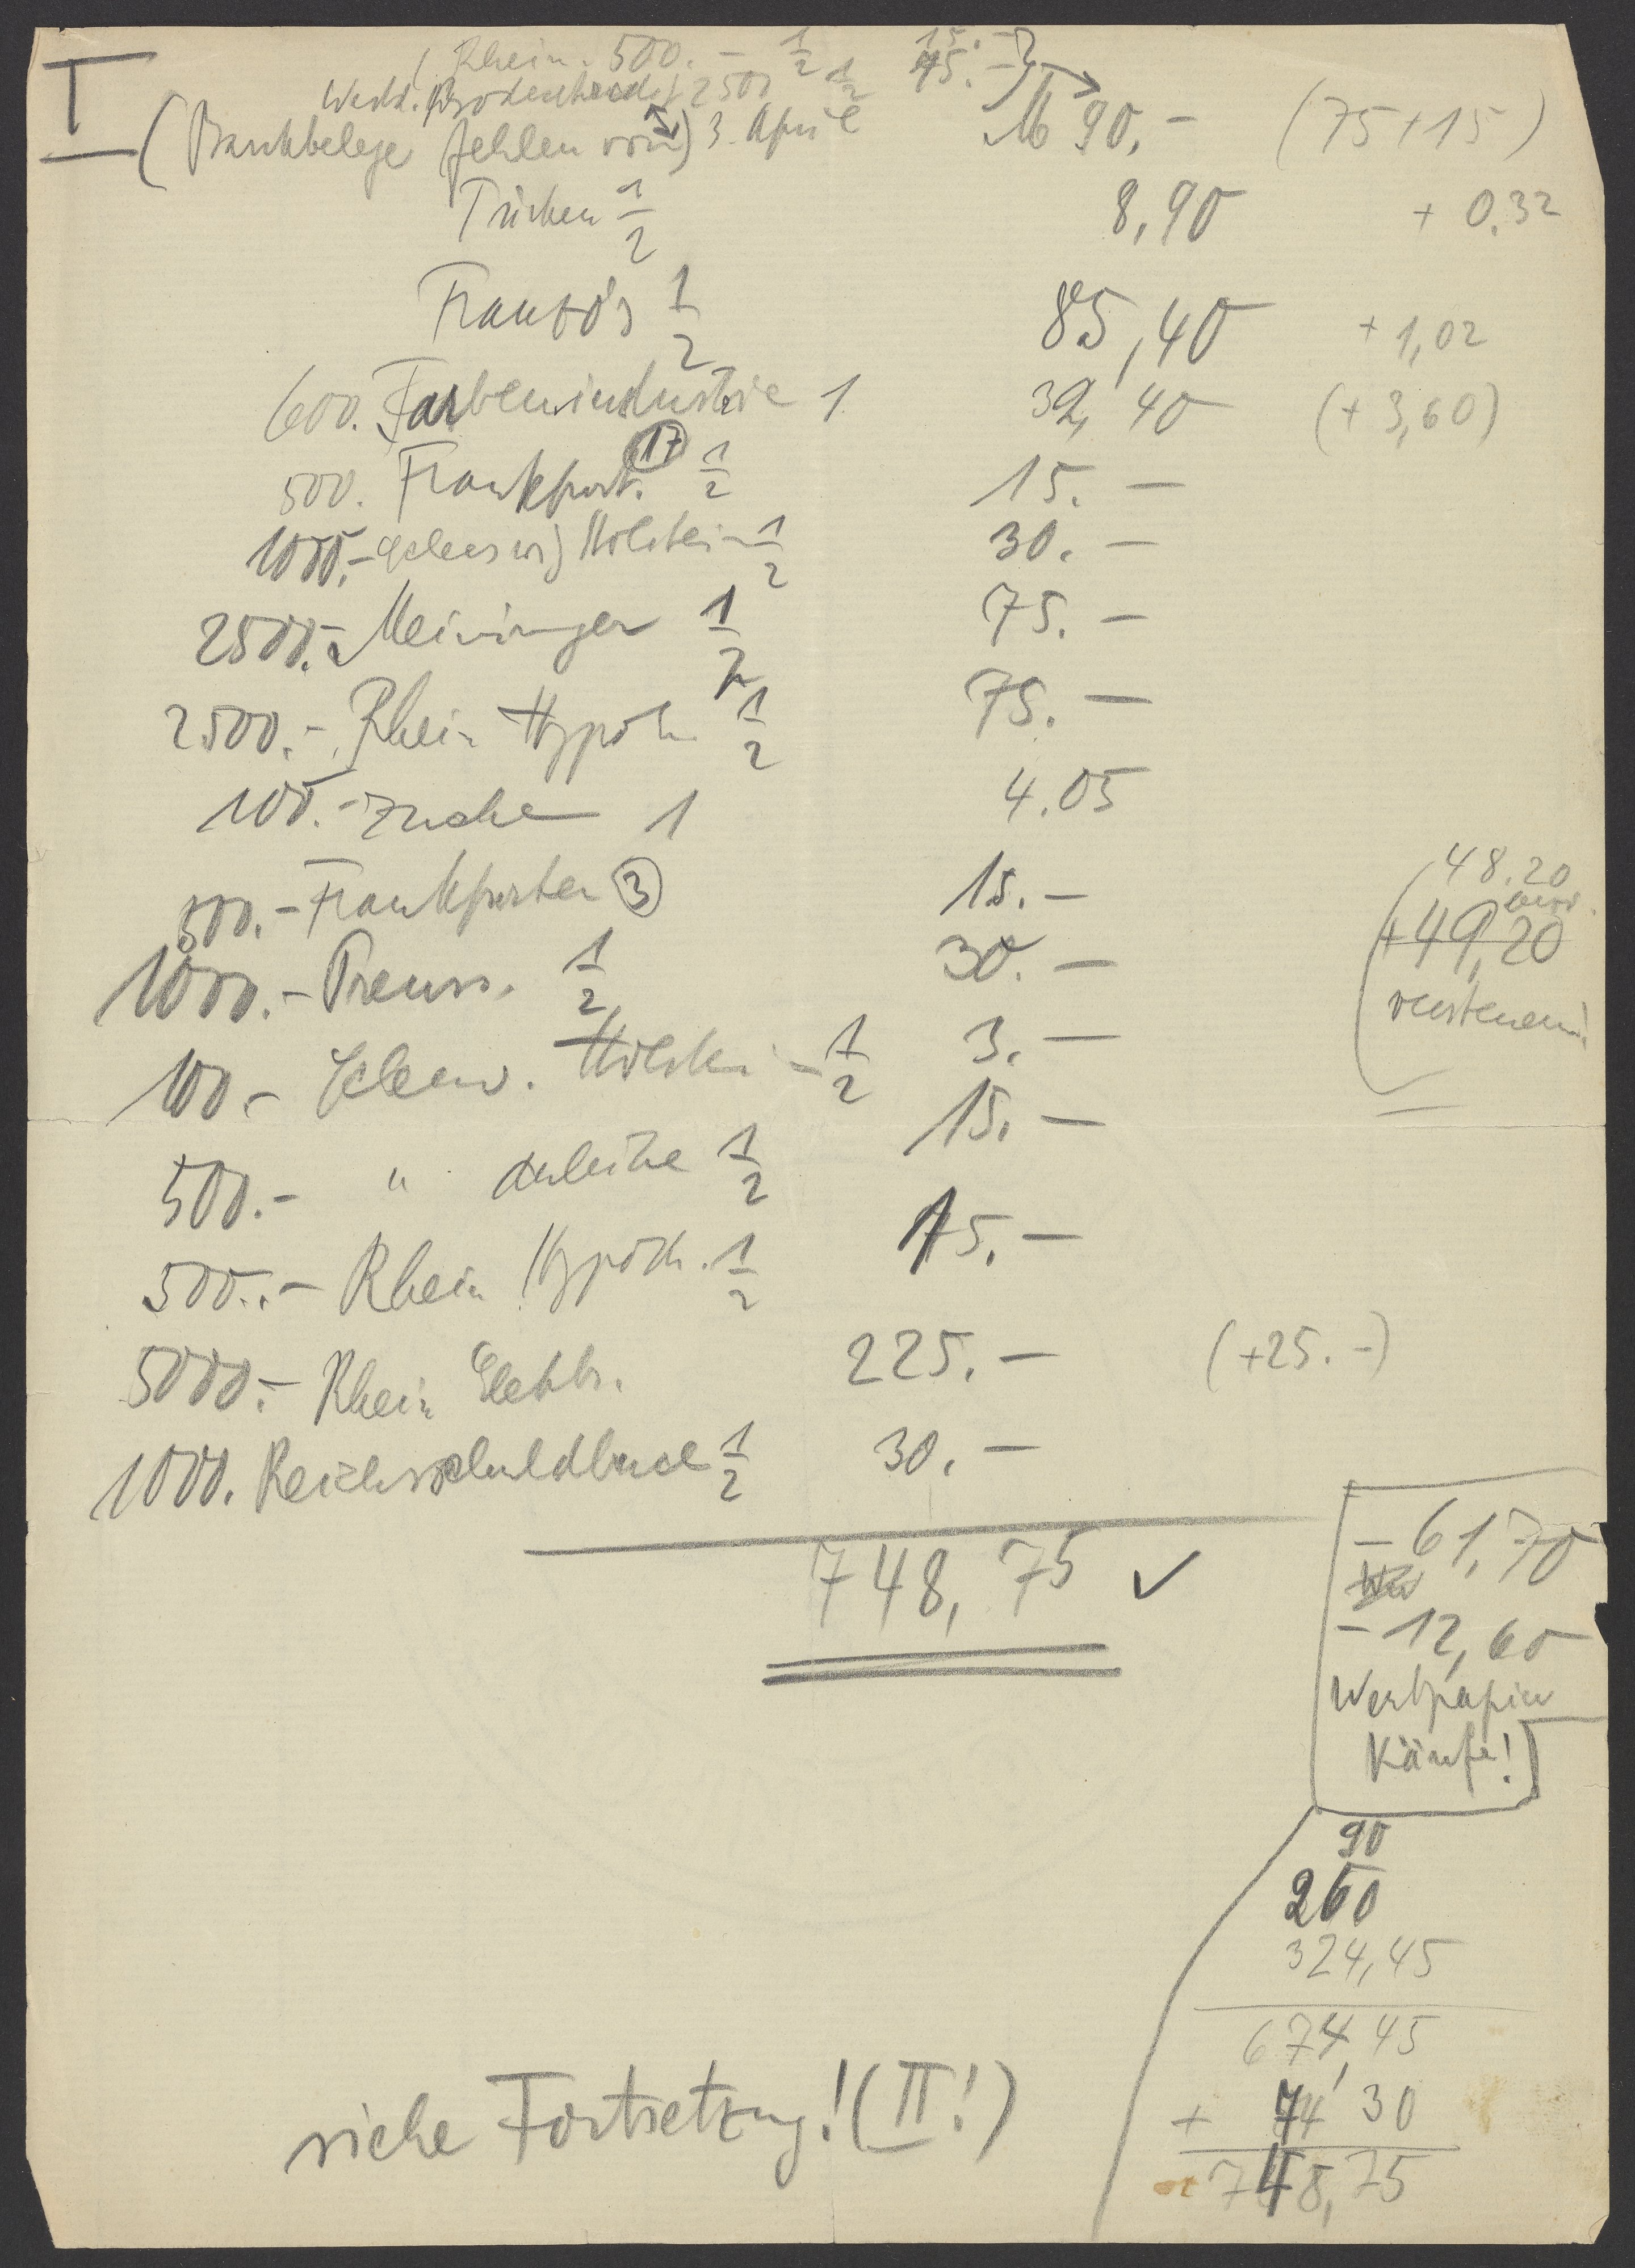 I
Rhein. 500. – 1/2 15. –
Westd. Bodenkredit 2500 1/2 75. –
(Bankbelege fehlen von) 3. April M 90,- (75+15)
Türken 1/2 8,90 + 0,32
Französ 1/2 85,40 + 1,02
600. Farbenindustrie 1 32,40 (+ 3,60)
500. Frankfurt. (17) 1/2 15. –
1000,- Schleswig Holstein 1/2 30. –
2500.- Meininger 1/2 75. –
2500.- Rhein Hypoth 1/2 75. –
100.- Zucker 1 4.05
500.- Frankfurter (3) 15. –
1000.- Preuss. 1/2 30. –
100.- Schlesw. Holstein 1/2 3. –
500.- " Anleihe 1/2 15. –
500.- Rhein Hypoth. 1/2 15. –
5000.- Rhein Elektr. 225. – (+25. –)
1000. Reichsschuldbuch 1/2 30. –
748,75 ✓
48.20
+49,20
versteuern!
– 61,70
– 12,60
Wertpapier
Käufe!
90
260
324,45
674,45
+ 74,30
748,75
siehe Fortsetzung! (II!)